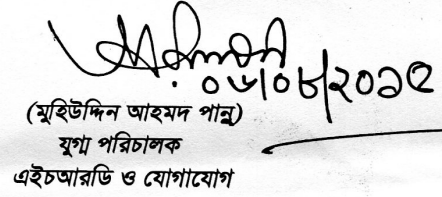 ০৬/০৮/২০১৫
(মুহিউদ্দিন আহমদ পানু)
যুগ্ম পরিচালক
এইচআরডি ও যোগাযোগ